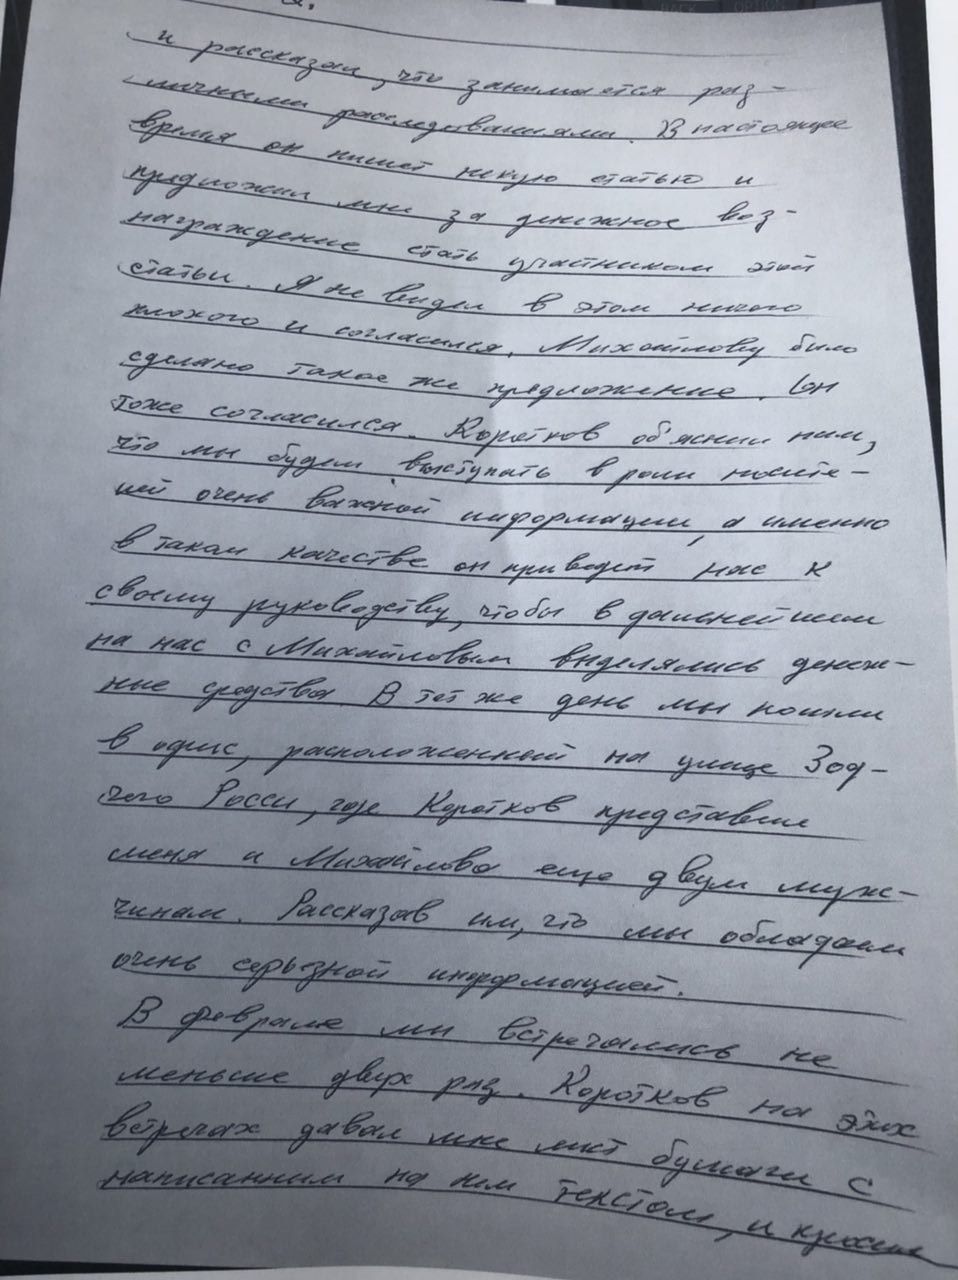 и рассказал, что занимается раз-
личными расследованиями. В настоящее
время он пишет некую статью и
предложил мне за денежное воз-
награждение стать участником этой
статьи. Я не видел в этом ничего
плохого и согласился. Михайлову было
сделано такое же предложение. Он
тоже согласился. Коротков объяснил нам,
что мы будем выступать в роли носите-
лей очень важной информации, а именно
в таком качестве он приведет нас к
своему руководству, чтобы в дальнейшем
на нас с Михайловым выделялись денеж-
ные средства. В тот же день мы пошли
в офис, расположенный на улице Зод-
чего Росси, где Коротков представил
меня и Михайлова еще двум муж-
чинам. Рассказав им, что мы обладаем
очень серьезной информацией.
В феврале мы встречались не
меньше двух раз. Коротков на этих
встречах давал мне лист бумаги с
написанным на нем текстом, и просил